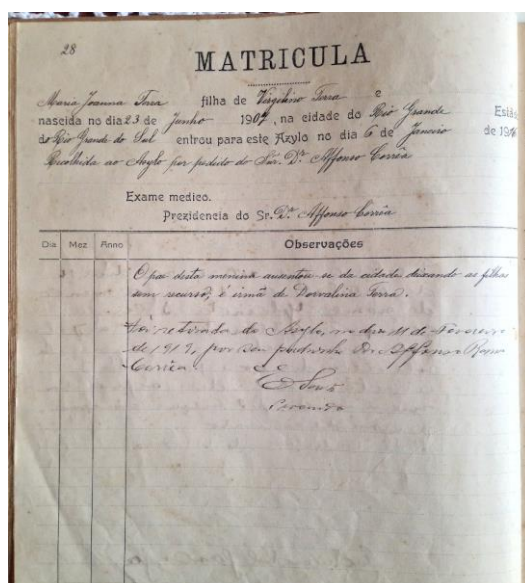 28
MATRICULA
Maria Joanna Terra filha de Virgilino Terra e
nascida no dia 23 de Junho 1907, na cidade do Rio Grande Esta
do Rio Grande do Sul entrou para este Azylo no dia 6 de Janeiro de 191
Recolhida ao Asylo por pedido do Snr. Dr. Affonso Corrêa
Exame medico.
Prezidencia do Sr. Dr. Affonso Corrêa
Dia Mez Anno Observações
O pae desta menina ausentou-se da cidade deixando as filhas
sem recurso, é irmã de Dorvalina Terra.
Foi retirada do Asylo, no dia 11 de Fevereiro
de 1919, por seu padrinho Dr. Affonso
Corrêa